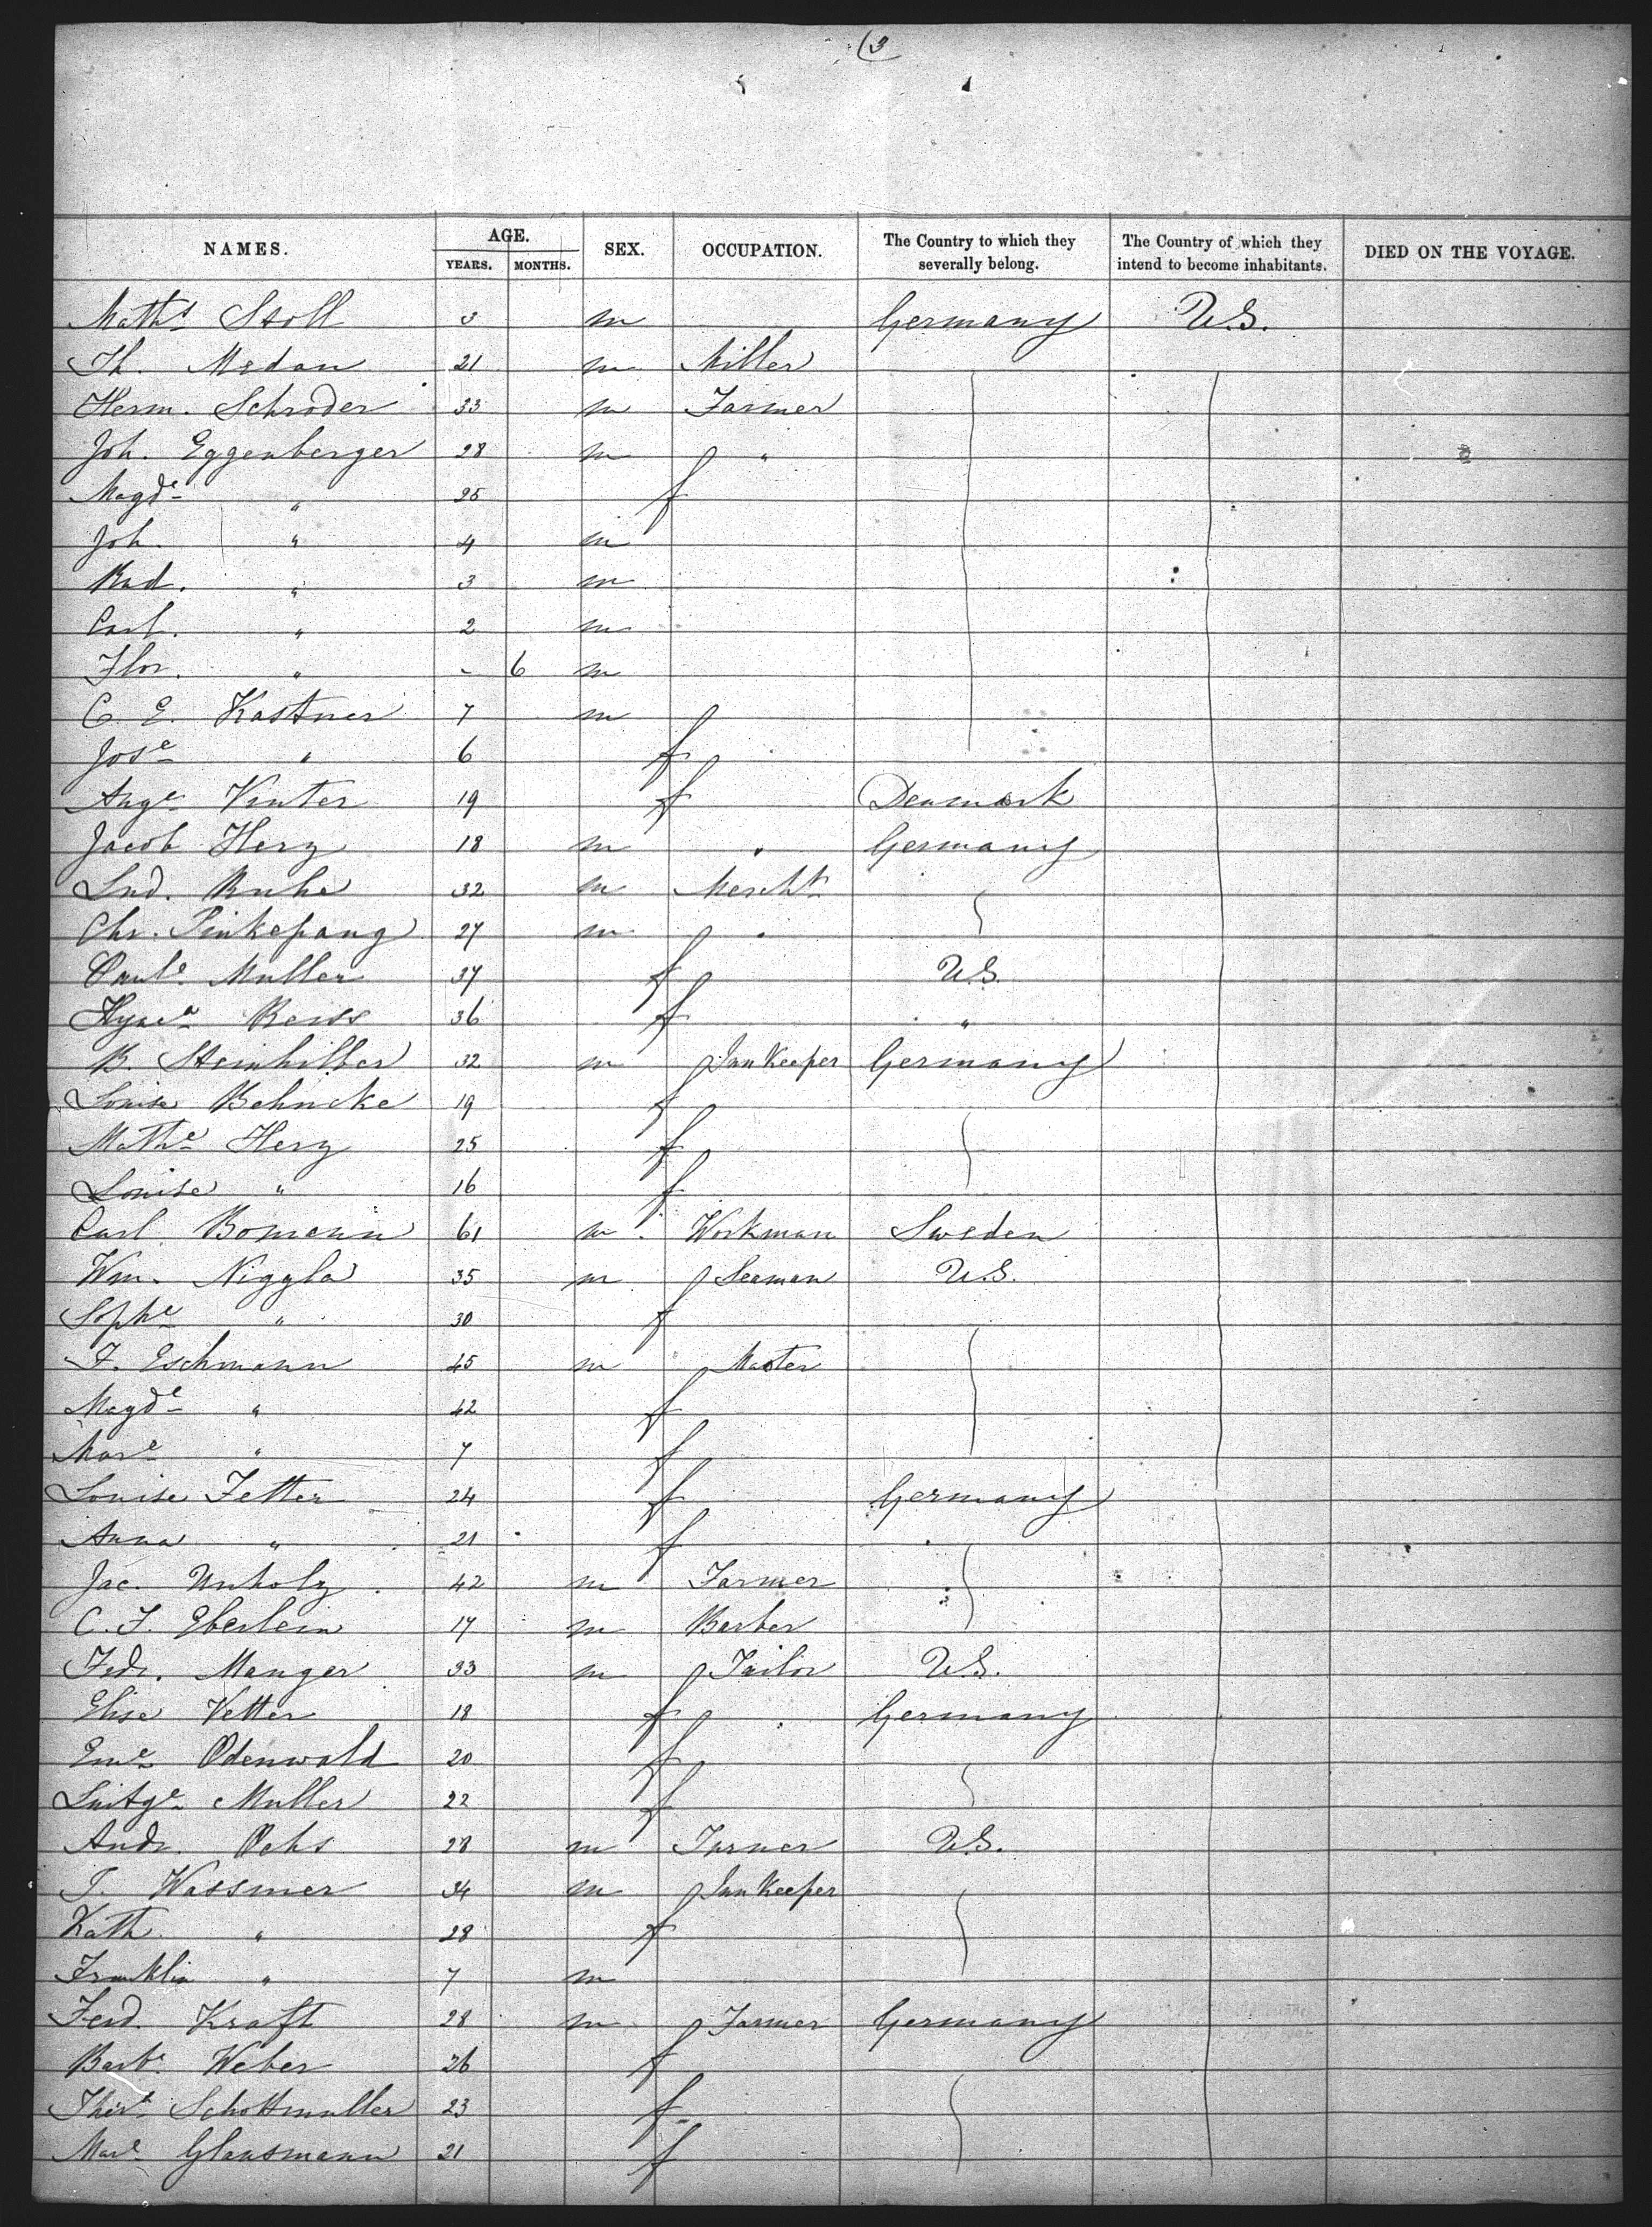 (3
NAMES. AGE. YEARS. MONTHS. SEX. OCCUPATION. The Country to which they severally belong. The Country of which they intend to become inhabitants. DIED ON THE VOYAGE.
Maths Stoll 3 m Germany U.S.
Th. Medan 21 m Miller
Herm. Schroder 33 m Farmer
Joh. Eggenberger 28 m "
Magde " 25 f
Joh. " 4 m
Rud. " 3 m
Carl. " 2 m
Flor. " - 6 m
C. E. Kastner 7 m
Jose " 6 f
Auge Vinter 19 f Denmark
Jacob Herz 18 m " Germany
Lud. Ruhe 32 m Mercht
Chr. Pinkepang 27 m "
Paule Muller 37 f U.S.
Reiss 36 f "
B. Steinhilber 32 m InnKeeper Germany
Louise Behncke 19 f
Mathe Herz 25 f
Louise " 16 f
Carl Bomann 61 m Workman Sweden
Wm. Niggla 35 m Seaman U.S.
Sophe " 30 f
F. Eschmann 45 m Master
Magde " 42 f
Mare " 7 f
Louise Fetter 24 f Germany
Anna " 21 f
Jac. Unholz 42 m Farmer
C. F. Eberlein 17 m Barber
Fedr. Manger 33 m Tailor U.S.
Elise Vetter 18 f Germany
Eme Odenwald 20 f
Luitge Muller 22 f
Andr. Ochs 28 m Turner U.S.
J. Wassmer 34 m InnKeeper
Kath. " 28 f
Franklin " 7 m
Ferd. Kraft 28 m Farmer Germany
Barb. Weber 26 f
Schottmuller 23 f
Mare Glansmann 21 f